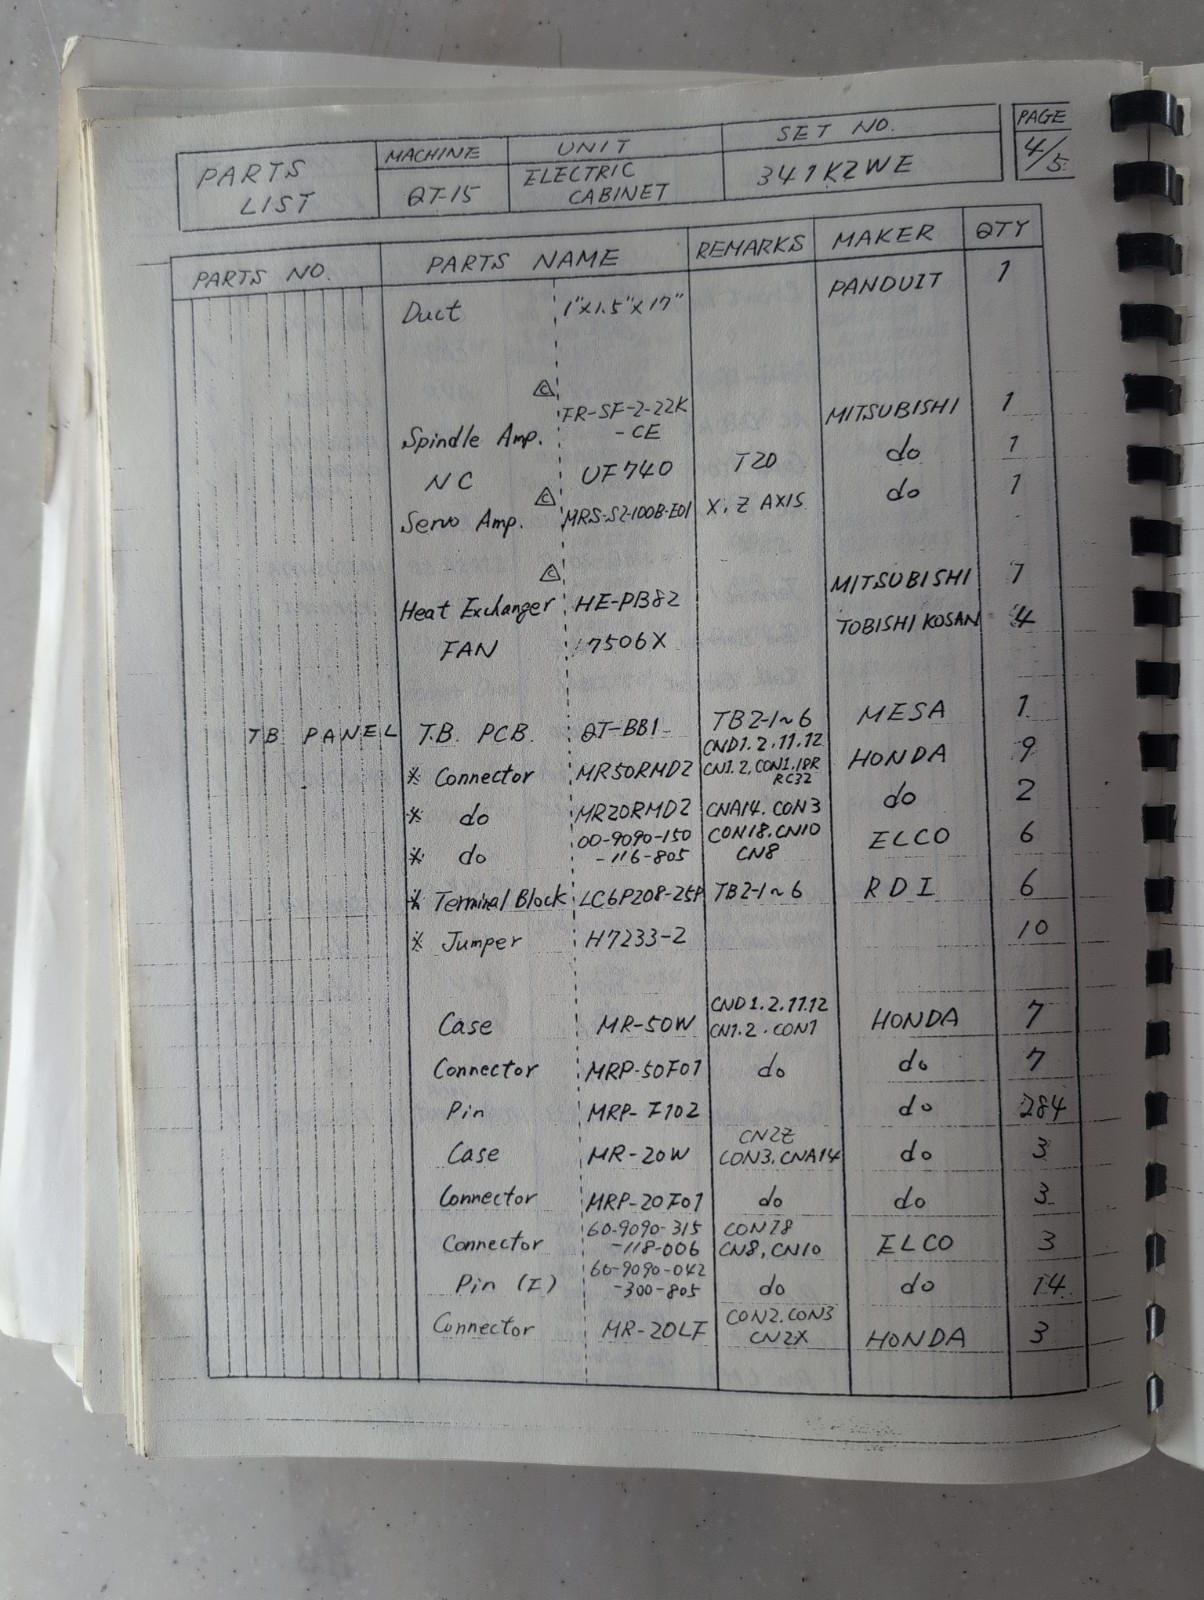 PARTS LIST MACHINE UNIT SET NO. PAGE
QT-15 ELECTRIC CABINET 341K2WE 4/5
PARTS NO. PARTS NAME REMARKS MAKER QTY
Duct 1"x1.5"x17" PANDUIT 1
C
Spindle Amp. FR-SF-2-22K MITSUBISHI 1
-CE
NC UF740 T20 do 1
C
Servo Amp. MRS-S2-100B-E01 X, Z AXIS do 1
C
Heat Exchanger HE-PB82 MITSUBISHI 1
FAN 7506X TOBISHI KOSAN 4
TB PANEL T.B. PCB. QT-BB1 TB2-1~6 MESA 1
CND1.2.11.12
※ Connector MR50RMD2 CN1.2, CON1.18R HONDA 9
RC32
※ do MR20RMD2 CNA14. CON3 do 2
※ do 00-9090-150 CON18.CN10 ELCO 6
-116-805 CN8
※ Terminal Block LC6P208-25P TB2-1~6 RDI 6
※ Jumper H7233-2 10
CND1.2.11.12
Case MR-50W CN1.2.CON1 HONDA 7
Connector MRP-50F01 do do 7
Pin MRP-F102 do 284
CN2Z
Case MR-20W CON3.CNA14 do 3
Connector MRP-20F01 do do 3
60-9090-315 CON18
Connector -118-006 CN8, CN10 ELCO 3
60-9090-042
Pin (I) -300-805 do do 14
CON2.CON3
Connector MR-20LF CN2X HONDA 3